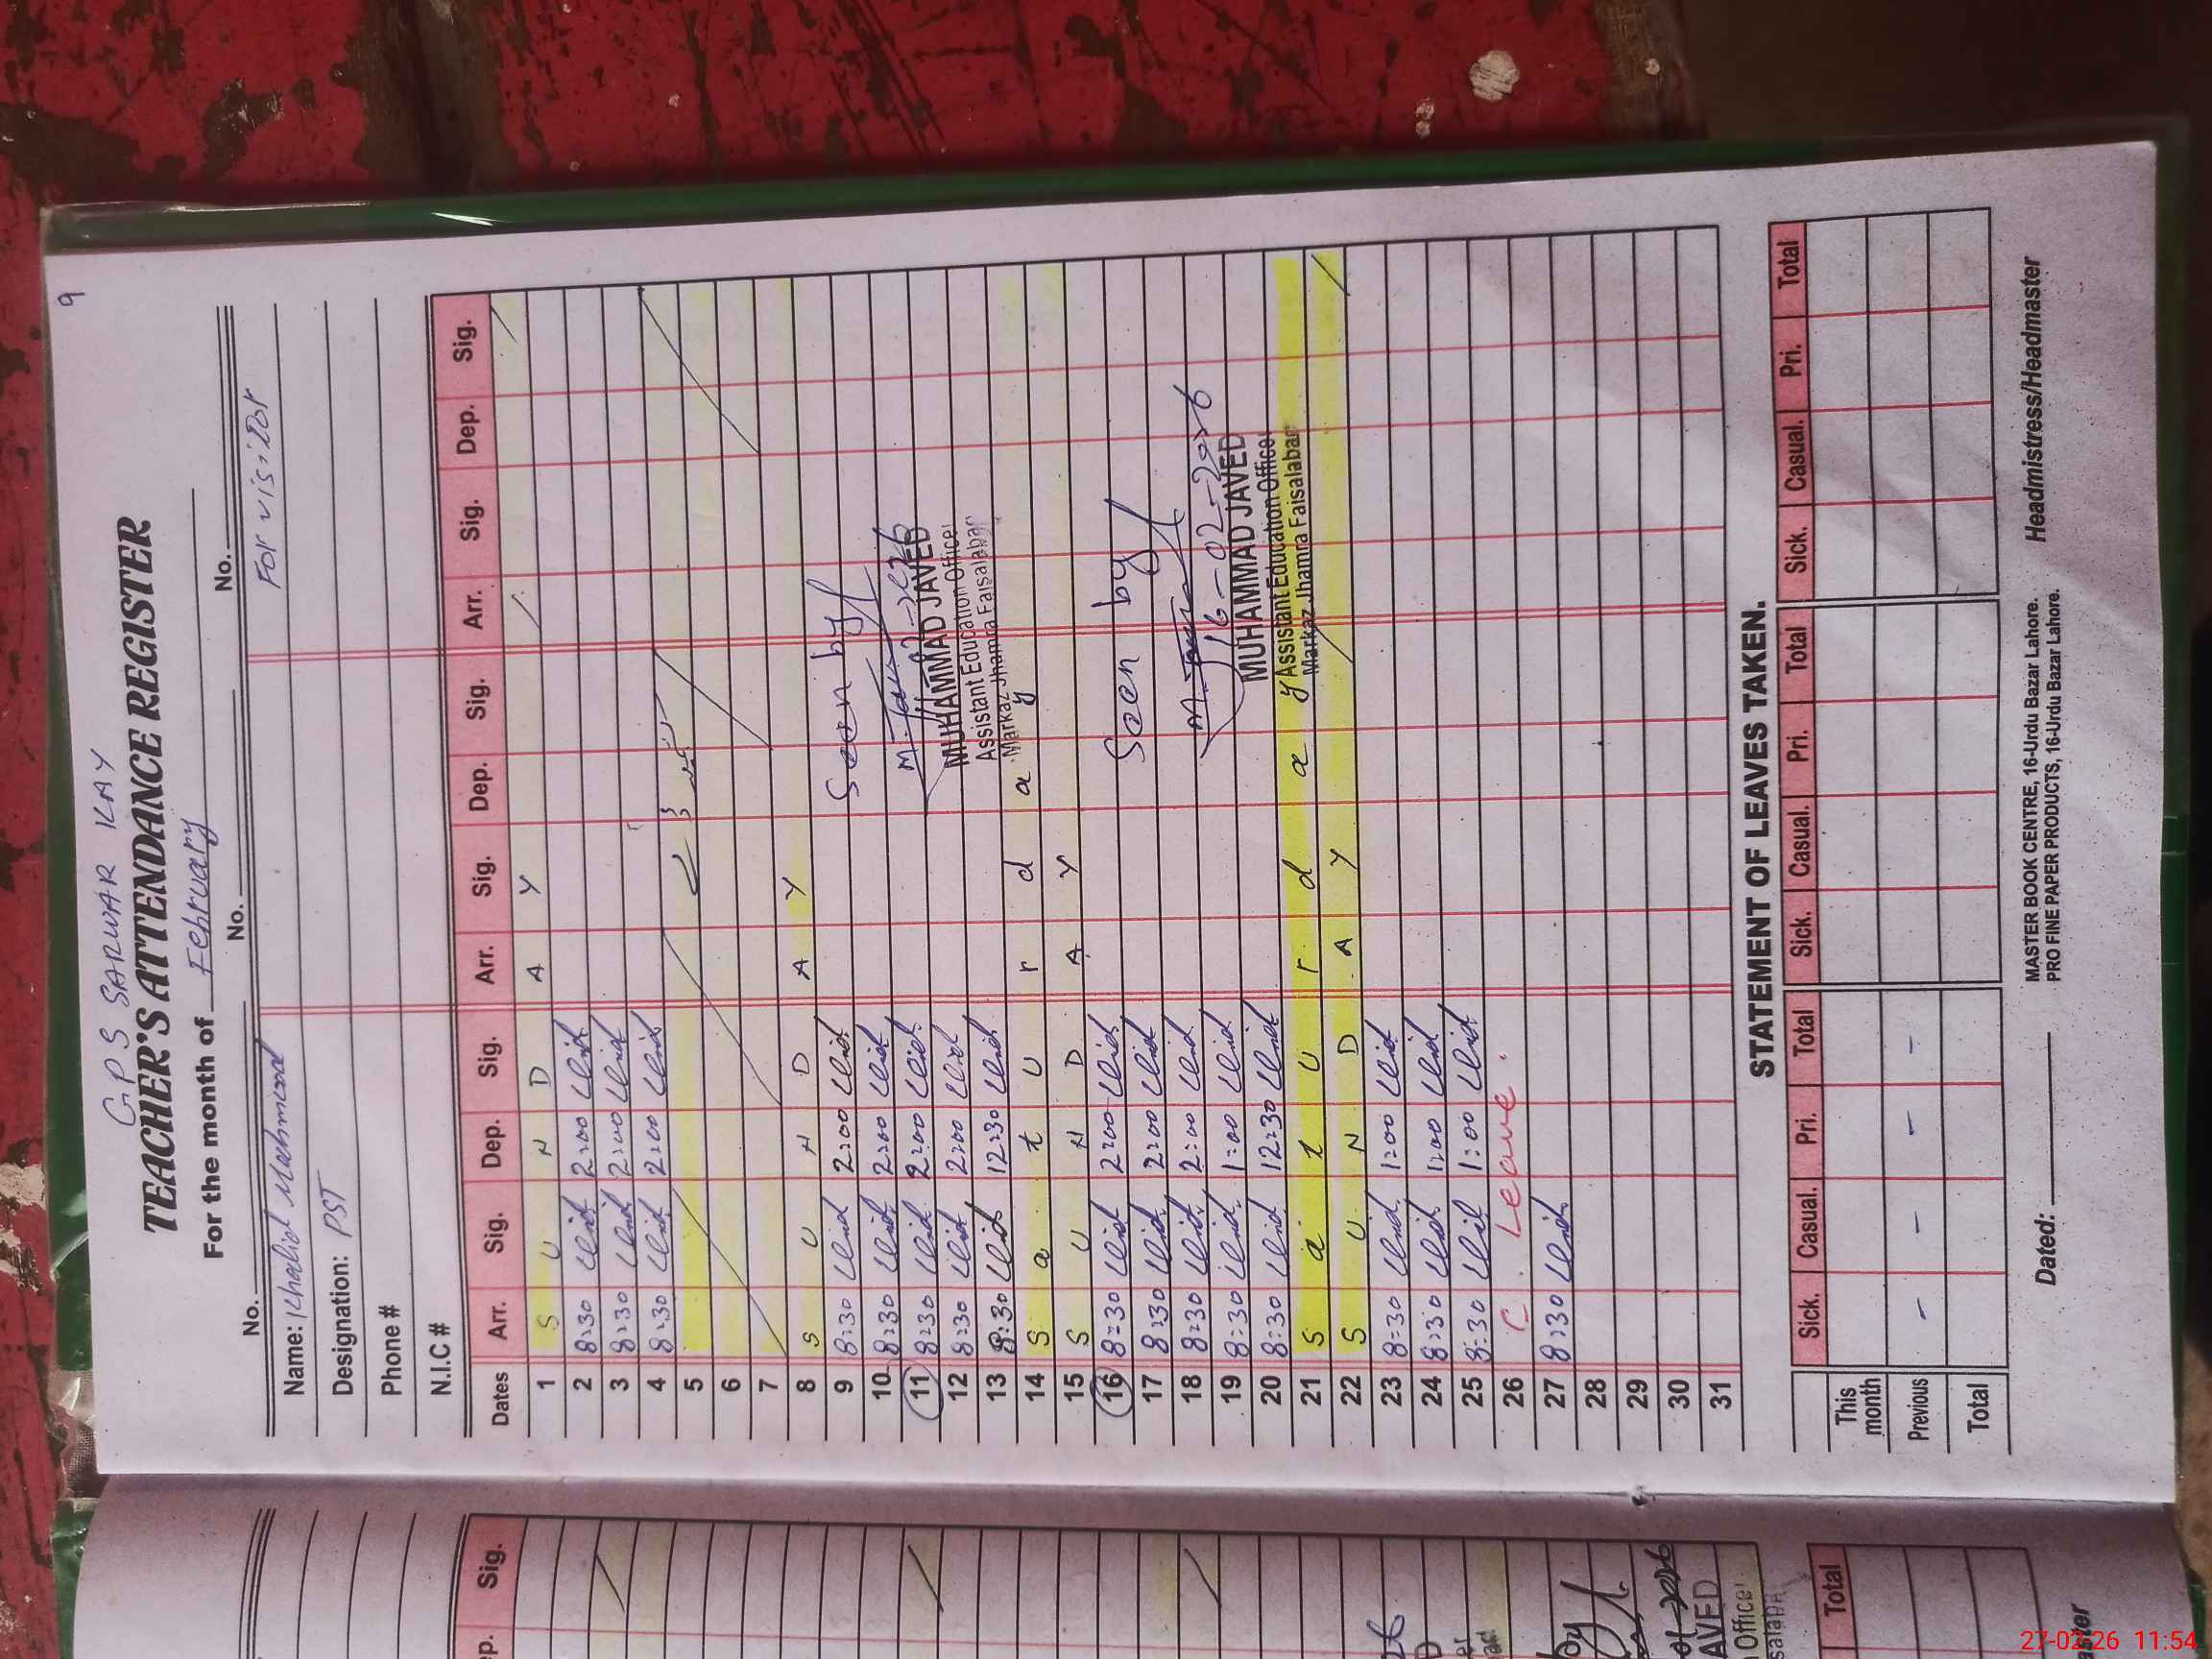 9
GPS SARWAR KAY
TEACHER'S ATTENDANCE REGISTER
For the month of February
No. No. No.
Name: Khalid Mahmood For visitor
Designation: PST
Phone #
N.I.C #
Dates Arr. Sig. Dep. Sig. Arr. Sig. Dep. Sig. Arr. Sig. Dep. Sig.
1 S U N D A Y
2 8:30 2:00
3 8:30 2:00
4 8:30 2:00
5
6
7
8 S U N D A Y
9 8:30 2:00 Seen by
10 8:30 2:00
11 8:30 2:00 MUHAMMAD JAVED
12 8:30 2:00 Assistant Education Officer
13 8:30 12:30 Markaz Jhamra Faisalabad
14 S a t u r d a y
15 S U N D A Y
16 8:30 2:00 Seen by
17 8:30 2:00
18 8:30 2:00 16-02-2026
19 8:30 1:00 MUHAMMAD JAVED
20 8:30 12:30 Assistant Education Officer
21 S a t u r d a y Markaz Jhamra Faisalabad
22 S U N D A Y
23 8:30 1:00
24 8:30 1:00
25 8:30 1:00
26 C. Leave.
27 8:30
28
29
30
31
STATEMENT OF LEAVES TAKEN.
Sick. Casual. Pri. Total Sick. Casual. Pri. Total Sick. Casual. Pri. Total
This month
Previous - - - -
Total
MASTER BOOK CENTRE, 16-Urdu Bazar Lahore.
PRO FINE PAPER PRODUCTS, 16-Urdu Bazar Lahore.
Dated: Headmistress/Headmaster
Sig.
Total
27-02-26 11:54